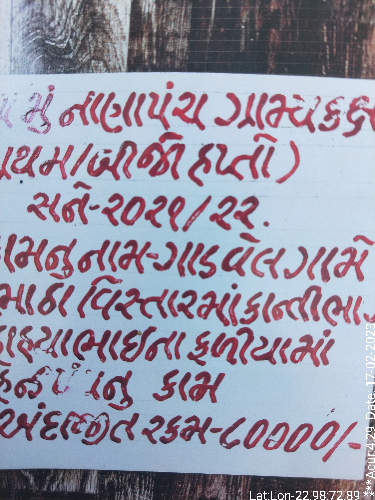 મું નાણાપંચ ગ્રામ્યકક્ષ
પ્રથમ/બીજો હપ્તો)
સને-૨૦૨૧/૨૨.
કામનુ નામ-ગાડવેલ ગામે
માઠા વિસ્તારમાં કાન્તીભા
ડાહ્યાભાઇના ફળીયામાં
નુ કામ
અંદાજીત રકમ-૮૦૦૦૦/-
Lat:Lon-22.98:72.89
***Acur:4.29 Date: 17-02-2023